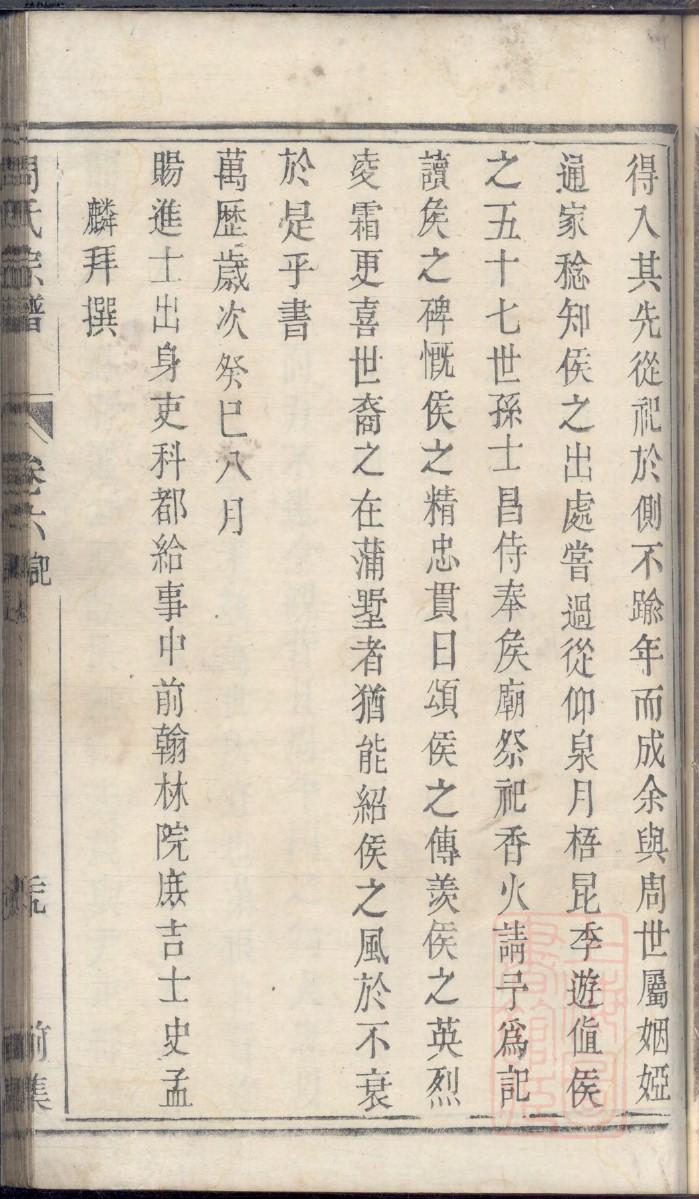 得入其先從祀於側不踰年而成余與周世屬姻婭
通家稔知侯之出處嘗過從仰泉月梧昆季遊值侯
之五十七世孫士昌侍奉侯廟祭祀香火請予爲記
讀侯之碑慨侯之精忠貫日頌侯之傳羨侯之英烈
凌霜更喜世裔之在蒲墅者猶能紹侯之風於不衰
於是乎書
萬歷歲次癸巳八月
賜進士出身吏科都給事中前翰林院庶吉士史孟
麟拜撰
周氏宗譜
卷六
記
前集